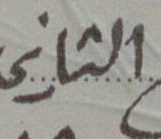 الثانى